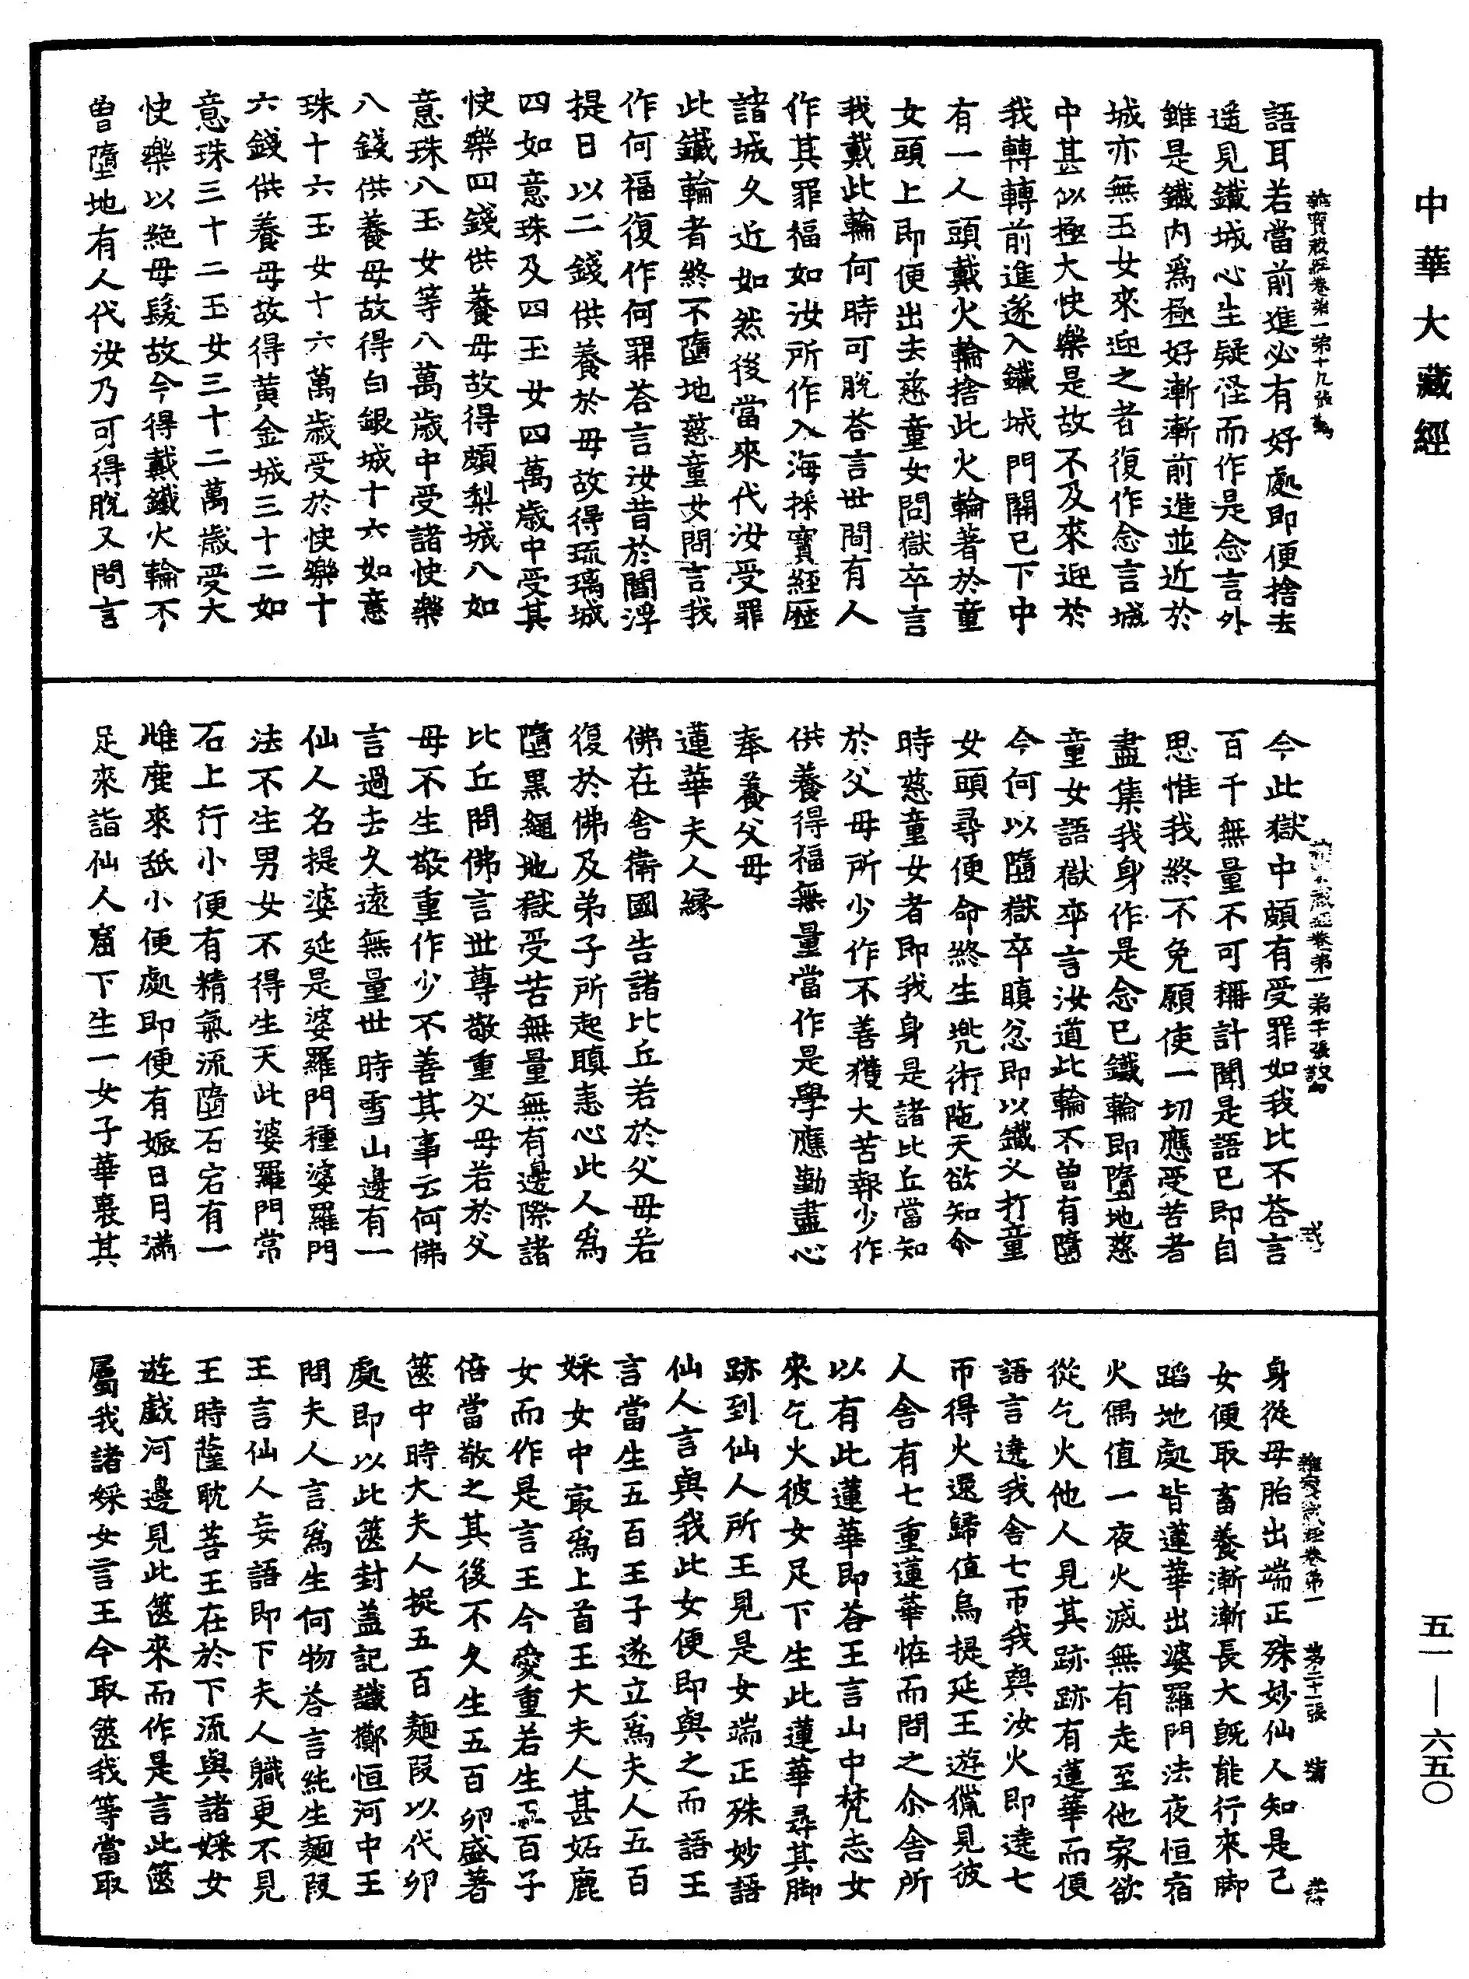 中華大藏經
語耳若當前進必有好處即便捨去
遥見鐵城心生疑怪而作是念言外
雖是鐵内爲極好漸漸前進並近於
城亦無玉女來迎之者復作念言城
中甚似極大快樂是故不及來迎於
我轉轉前進遂入鐵城門關已下中
有一人頭戴火輪捨此火輪著於童
女頭上即便出去慈童女問獄卒言
我戴此輪何時可脫荅言世間有人
作其罪福如汝所作入海採寶經歴
諸城久近如然後當來代汝受罪
此鐵輪者終不墮地慈童女問言我
作何福復作何罪荅言汝昔於閻浮
提日以二錢供養於母故得琉璃城
四如意珠及四玉女四萬歳中受其
快樂四錢供養母故得頗梨城八如
意珠八玉女等八萬歳中受諸快樂
八錢供養母故得白銀城十六如意
珠十六玉女十六萬歳受於快樂十
六錢供養母故得黄金城三十二如
意珠三十二玉女三十二萬歳受大
快樂以絶母髮故今得戴鐵火輪不
曽墮地有人代汝乃可得脫又問言
今此獄中頗有受罪如我比不荅言
百千無量不可稱計聞是語已即自
思惟我終不免願使一切應受苦者
盡集我身作是念已鐵輪即墮地慈
童女語獄卒言汝道此輪不曽有墮
今何以墮獄卒瞋忿即以鐵叉打童
女頭尋便命終生兜術陁天欲知尒
時慈童女者即我身是諸比丘當知
於父母所少作不善獲大苦報少作
供養得福無量當作是學應勤盡心
奉養父母
蓮華夫人縁
佛在舍衛國告諸比丘若於父母若
復於佛及弟子所起瞋恚心此人爲
墮黑繩地獄受苦無量無有邊際諸
比丘問佛言世尊敬重父母若於父
母不生敬重作少不善其事云何佛
言過去久遠無量世時雪山邊有一
仙人名提婆延是婆羅門種婆羅門
法不生男女不得生天此婆羅門常
石上行小便有精氣流墮石宕有一
雌鹿來舐小便處即便有娠日月滿
足來詣仙人窟下生一女子華裹其
身從母胎出端正殊妙仙人知是己
女便取畜養漸漸長大旣能行來脚
蹈地處皆蓮華出婆羅門法夜恒宿
火偶值一夜火滅無有走至他家欲
從乞火他人見其跡跡有蓮華而便
語言遶我舍七帀我與汝火即遶七
帀得火還歸值烏提延王遊獵見彼
人舍有七重蓮華恠而問之尒舍所
以有此蓮華即荅王言山中梵志女
來乞火彼女足下生此蓮華尋其脚
跡到仙人所王見是女端正殊妙語
仙人言與我此女便即與之而語王
言當生五百王子遂立爲夫人五百
婇女中冣爲上首王大夫人甚妬鹿
女而作是言王今愛重若生五百子
倍當敬之其後不久生五百卵盛著
篋中時大夫人捉五百麵段以代卵
處即以此篋封盖記識擲恒河中王
問夫人言爲生何物荅言純生麵段
王言仙人妄語即下夫人職更不見
王時薩耽菩王在於下流與諸婇女
遊戲河邊見此篋來而作是言此篋
屬我諸婇女言王今取篋我等當取
五一—六五〇